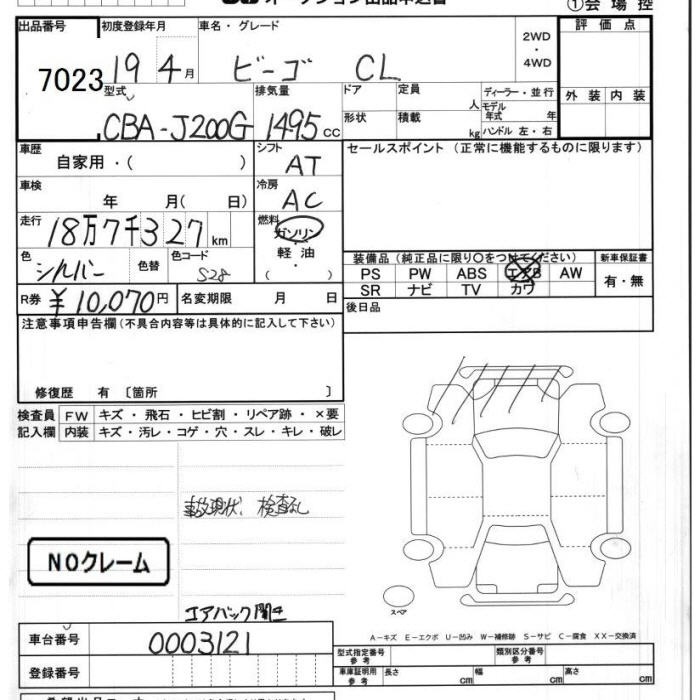 ①会 場 控
出品番号 初度登録年月 車名・グレード 2WD・4WD 評 価 点
7023 19 4月 ビーゴ CL
型式 排気量 ドア 定員 人 ディーラー・並行 外 装 内 装
CBA-J200G 1495cc 形状 積載 kg モデル年式 年 ハンドル 左・右
車歴 シフト セールスポイント (正常に機能するものに限ります)
自家用・( ) AT
車検 冷房
年 月( 日) AC
走行 燃料
18万7千327km ガソリン
色 色替 色コード 軽 油 装備品 (純正品に限り○をつけてください) 新車保証書
シルバー S28 ( ・ ) PS PW ABS エアB AW 有・無
R券 ¥10,070円 名変期限 月 日 SR ナビ TV カワ
注意事項申告欄(不具合内容等は具体的に記入して下さい) 後日品
修復歴 有 〔箇所 〕
検査員 FW キズ・飛石・ヒビ割・リペア跡・×要
記入欄 内装 キズ・汚レ・コゲ・穴・スレ・キレ・破レ
事故現状、検査なし
NOクレーム
スペア
エアバック
A-キズ E-エクボ U-凹み W-補修跡 S-サビ C-腐食 XX-交換済
車台番号 0003121 型式指定番号 参考 類別区分番号 参考
登録番号 車庫証明用 参考 長さ cm 幅 cm 高さ cm